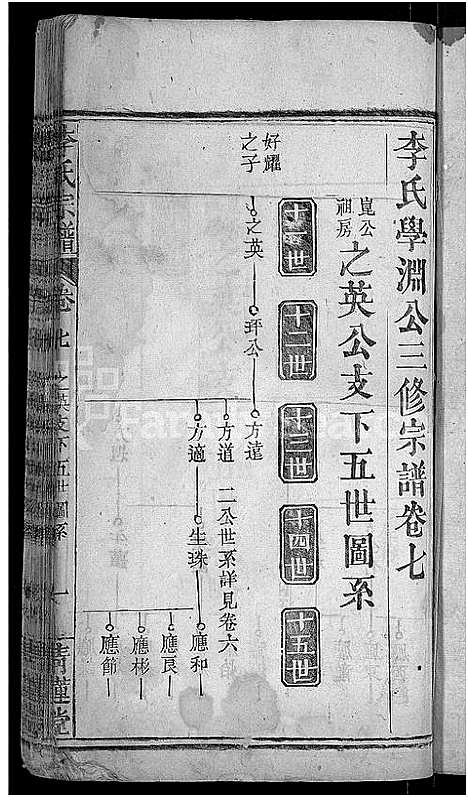 李氏學淵公三修宗譜卷七
崑公祖房
之英公支下五世圖系
十一世
十二世
十三世
十四世
十五世
好耀之子
之英
玶公
方遠
方道
二公世系詳見卷六
方適
生珠
應和
應良
應彬
應節
李氏宗譜
卷七
之英支下五世圖系
一
青蓮堂